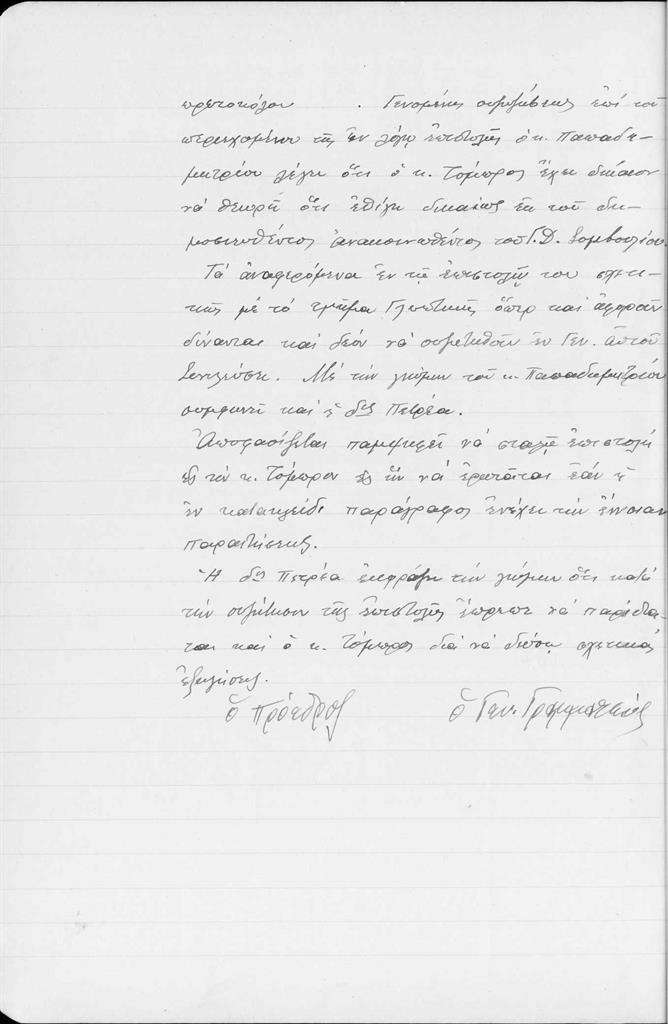 πρωτοκόλου . Γενομένης συζητήσεως ἐπί τοῦ
περιεχομένου τῆς ἐν λόγῳ ἐπιστολῆς ὁ κ. Παπαδη-
μητρίου λέγει ὅτι ὁ κ. Τόμπρος ἔχει δίκαιον
νά θεωρῇ ὅτι ἐθίγη δικαίως ἐκ τοῦ δη-
μοσιευθέντος ἀνακοινωθέντος τοῦ Γ.Δ. Συμβουλίου.
Τά ἀναφερόμενα ἐν τῇ ἐπιστολῇ του σχετι-
κῶς μέ τό τμῆμα Γλυπτικῆς ὅπερ καί ἀφοροῦν
δύνανται καί δέον νά συζητηθοῦν ἐν Γεν. αὐτοῦ
Συνελεύσει. Μέ τήν γνώμην τοῦ κ. Παπαδημητρίου
συμφωνεῖ καί ἡ δὶς Πετρέα.
Ἀποφασίζεται παμψηφεί νά σταλῇ ἐπιστολή
εἰς τόν κ. Τόμπρον εἰς ἥν νά ἐρωτᾶται ἐάν ἡ
ἐν κατακλεῖδι παράγραφος ἐνέχει τήν ἔννοιαν
παραιτήσεως.
Ἡ δὶς Πετρέα ἐκφράζει τήν γνώμην ὅτι κατά
τήν συζήτησιν τῆς ἐπιστολῆς ἔπρεπε νά παρίστα-
ται καί ὁ κ. Τόμπρος διά νά δώσῃ σχετικάς
ἐξηγήσεις.
ὁ Πρόεδρος ὁ Γεν. Γραμματεύς